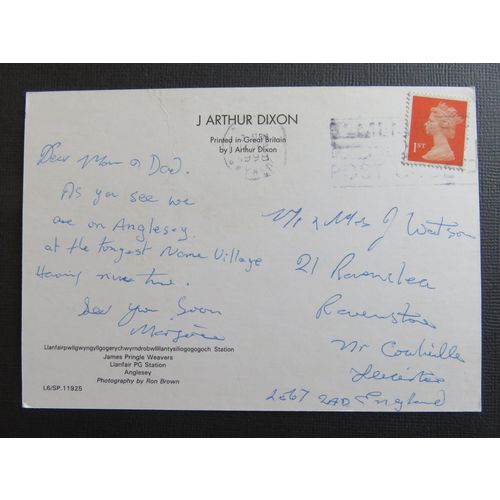 J ARTHUR DIXON
Printed in Great Britain
by J Arthur Dixon
1ST
POST
Dear Mom & Dad.
As you see we
are on Anglesey.
at the Longest Name Village
Having nice time.
See you Soon
Mr & Mrs J Watson
21
Ravenstone
Nr Coalville
Leicester
LE67 2AD England
Llanfairpwllgwyngyllgogerychwyrndrobwllllantysiliogogogoch Station
James Pringle Weavers
Llanfair PG Station
Anglesey
Photography by Ron Brown
L6/SP.11925